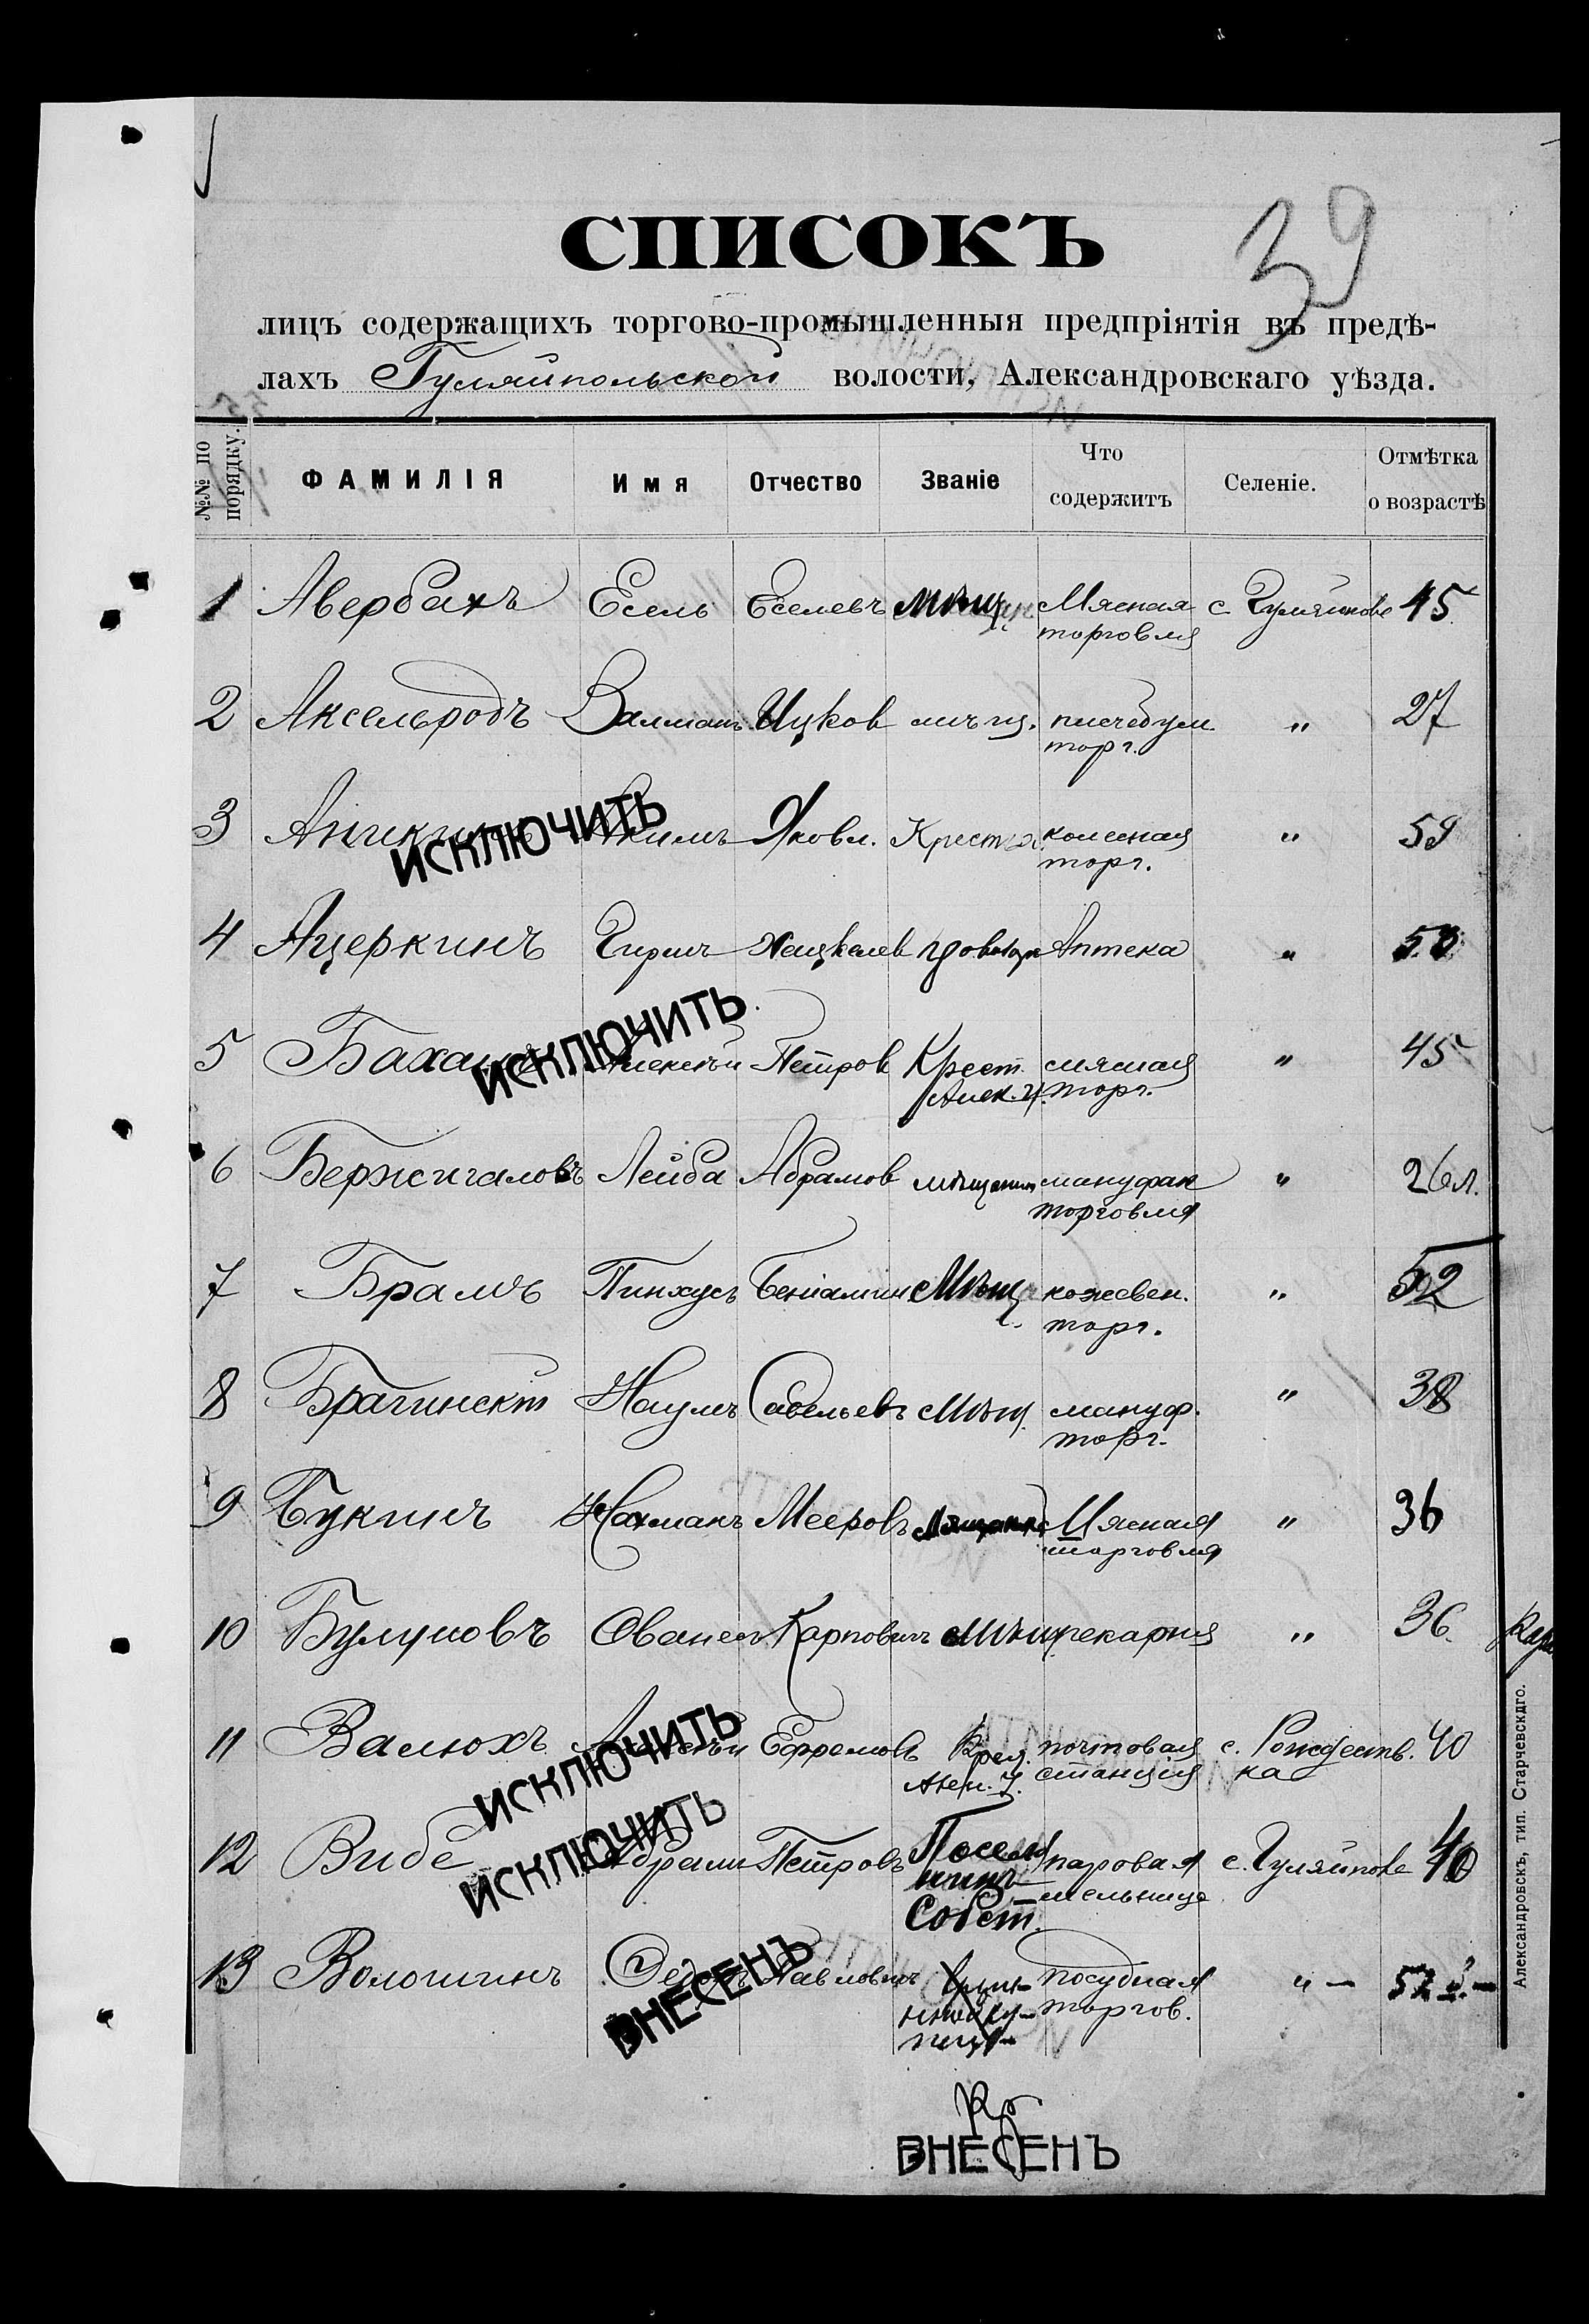 39
СПИСОКЪ
лицъ содержащихъ торгово-промышленныя предпріятія въ предѣ-
лахъ Гуляйпольской волости, Александровскаго уѣзда.
№№ по порядку. ФАМИЛІЯ Имя Отчество Званіе Что содержитъ Селеніе. Отмѣтка о возрастѣ
1 Авербахъ Есель Еселевъ мѣщ. Мясная с. Гуляйполе 45
торговля
2 Аксельродъ Залманъ Ицков мѣщ. писчебум. " 27
торг.
3 Акимъ Яковл. Крест. колесная " 59
торг.
ИСКЛЮЧИТЬ
4 Ацеркинъ Гиршъ Хацкелев Аптека " 50
5 Алексѣй Петров Крест. мясная " 45
Алек. У. торг.
ИСКЛЮЧИТЬ
6 Бержигаловъ Лейба Абрамов мѣщанин мануфак " 26 л.
торговля
7 Брамъ Пинхусъ Беніамин Мѣщ. кожевен. " 52
торг.
8 Брагинскій Наумъ Савельевъ Мѣщ. мануф. " 38
торг.
9 Букинъ Нахманъ Мееровъ Мясная " 36
торговля
10 Булуповъ Ованес Карповичъ Мѣщ. пекарня " 36.
11 Валюхъ Ефремовъ Крест. почтовая с. Рождеств. 40
Алек. У. станція ка
ИСКЛЮЧИТЬ
12 Вибе Абрамъ Петровъ Посел. паровая с. Гуляйполе 40
нинъ мельница
Собст.
ИСКЛЮЧИТЬ
13 Волошинъ Федоръ Павловичъ посудная " — 52 л. —
торгов.
ВНЕСЕНЪ
Кр
ВНЕСЕНЪ
Александровскъ, тип. Старчевскдго.